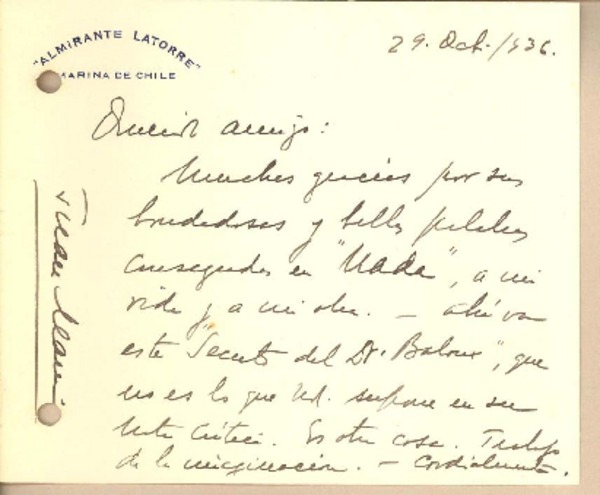 "ALMIRANTE LATORRE"
MARINA DE CHILE
29. Oct./936.
Querido amigo:
Muchas gracias por sus
bondadosas y bellas palabras
consagradas en "Nada", a mi
vida y a mi obra. — ahí va
este "Secreto del Dr. Baloux", que
no es lo que Ud. supone en su
nota crítica. Es otra cosa. Trabajo
de la imaginación. — Cordialmente.
Juan Marin